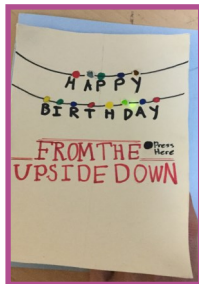 HAPPY
BIRTHDAY
FROM THE
Press
Here
UPSIDE DOWN